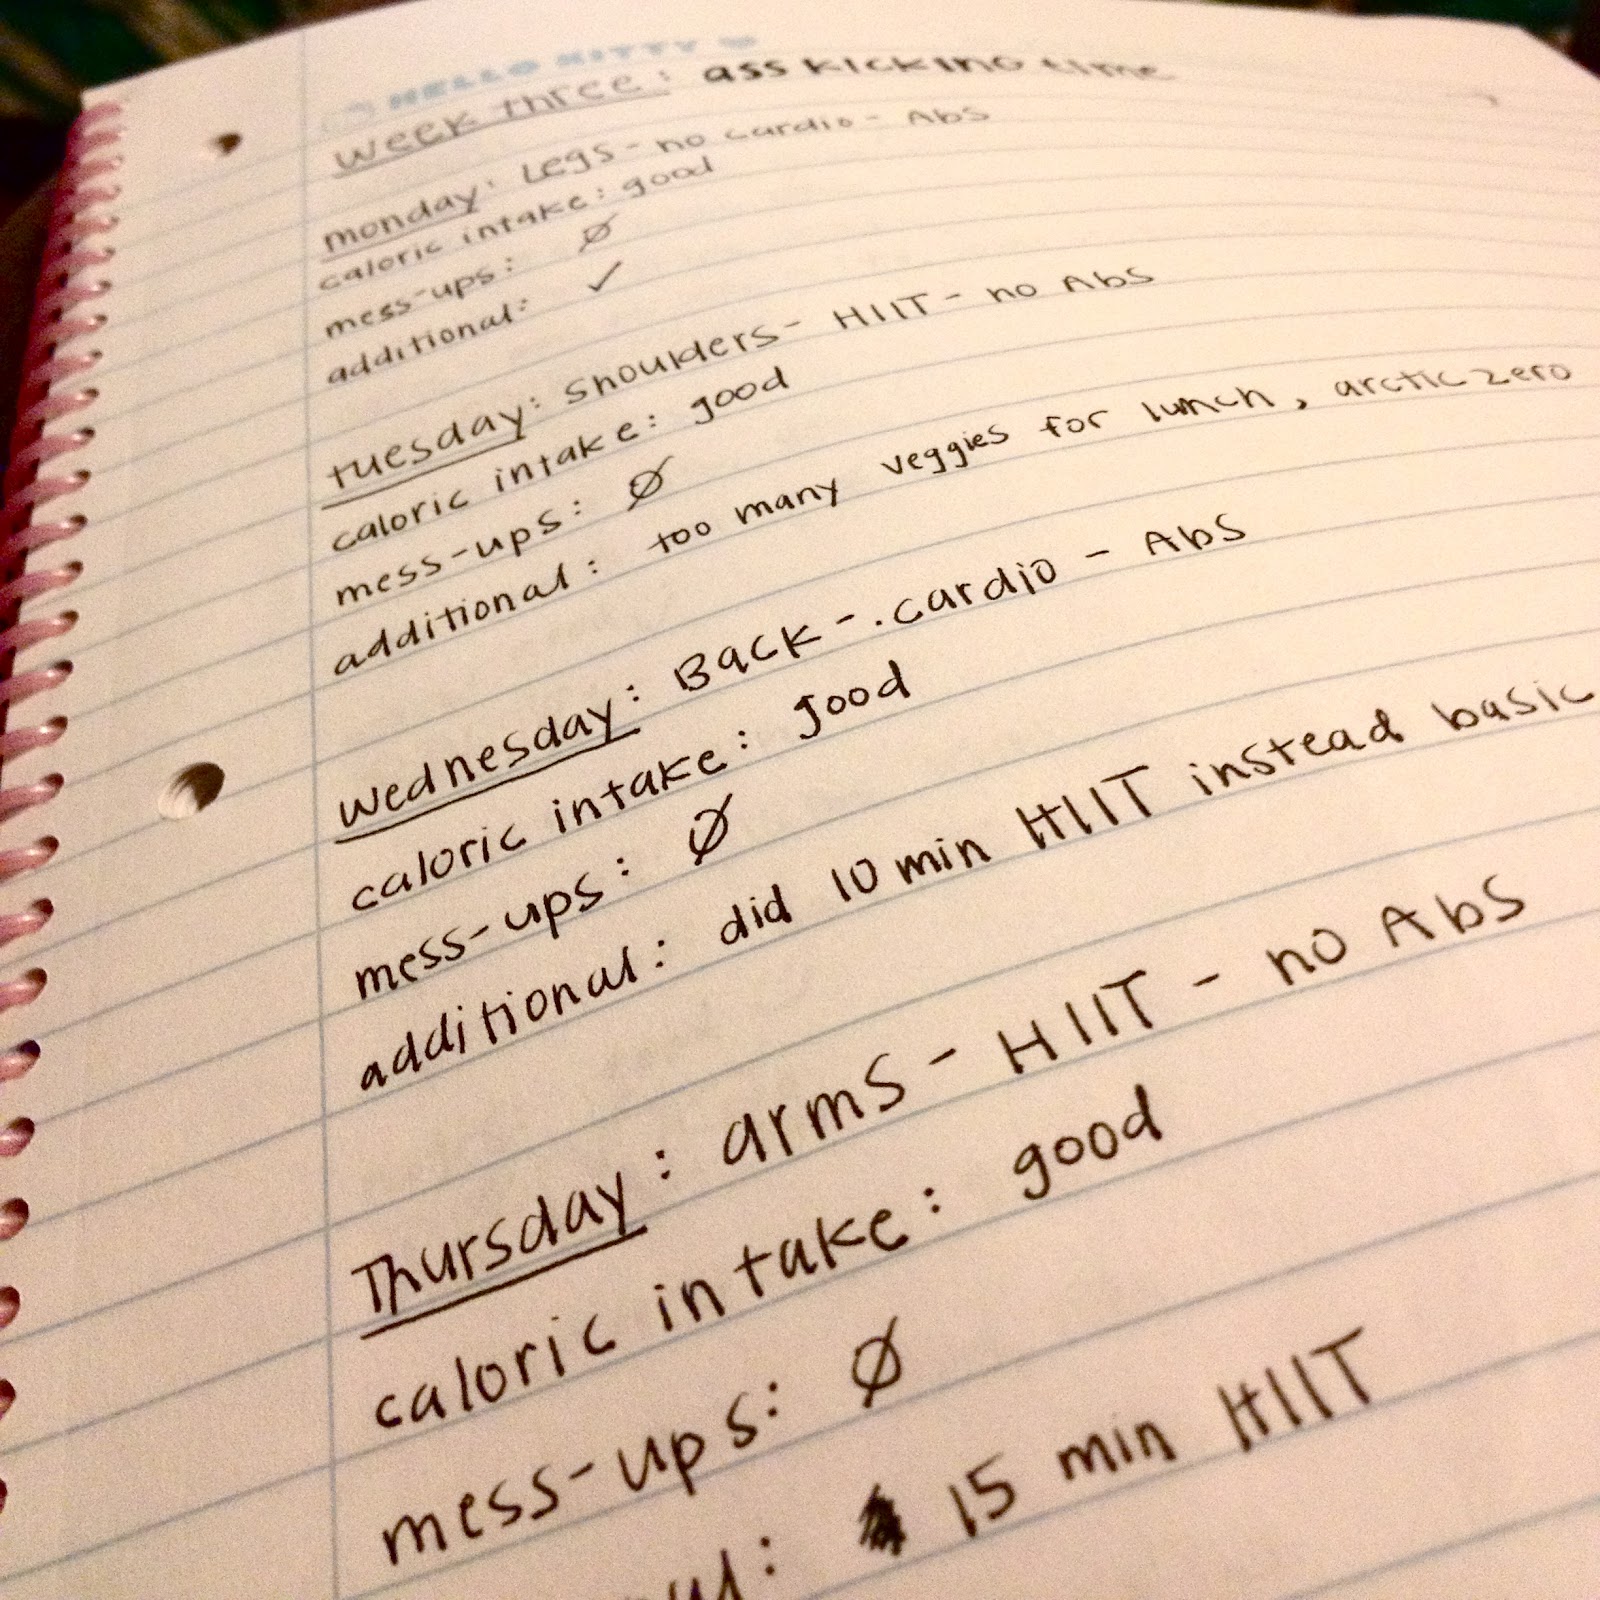 HELLO KITTY
week three: ass kicking time
monday: Legs - no cardio - Abs
caloric intake: good
mess-ups: Ø
additional: ✓
tuesday: Shoulders - HIIT - no Abs
caloric intake: good
mess-ups: Ø
additional: too many veggies for lunch, arctic zero
wednesday: Back - cardio - Abs
caloric intake: good
mess-ups: Ø
additional: did 10 min HIIT instead basic
Thursday: arms - HIIT - no Abs
caloric intake: good
mess-ups: Ø
: 15 min HIIT